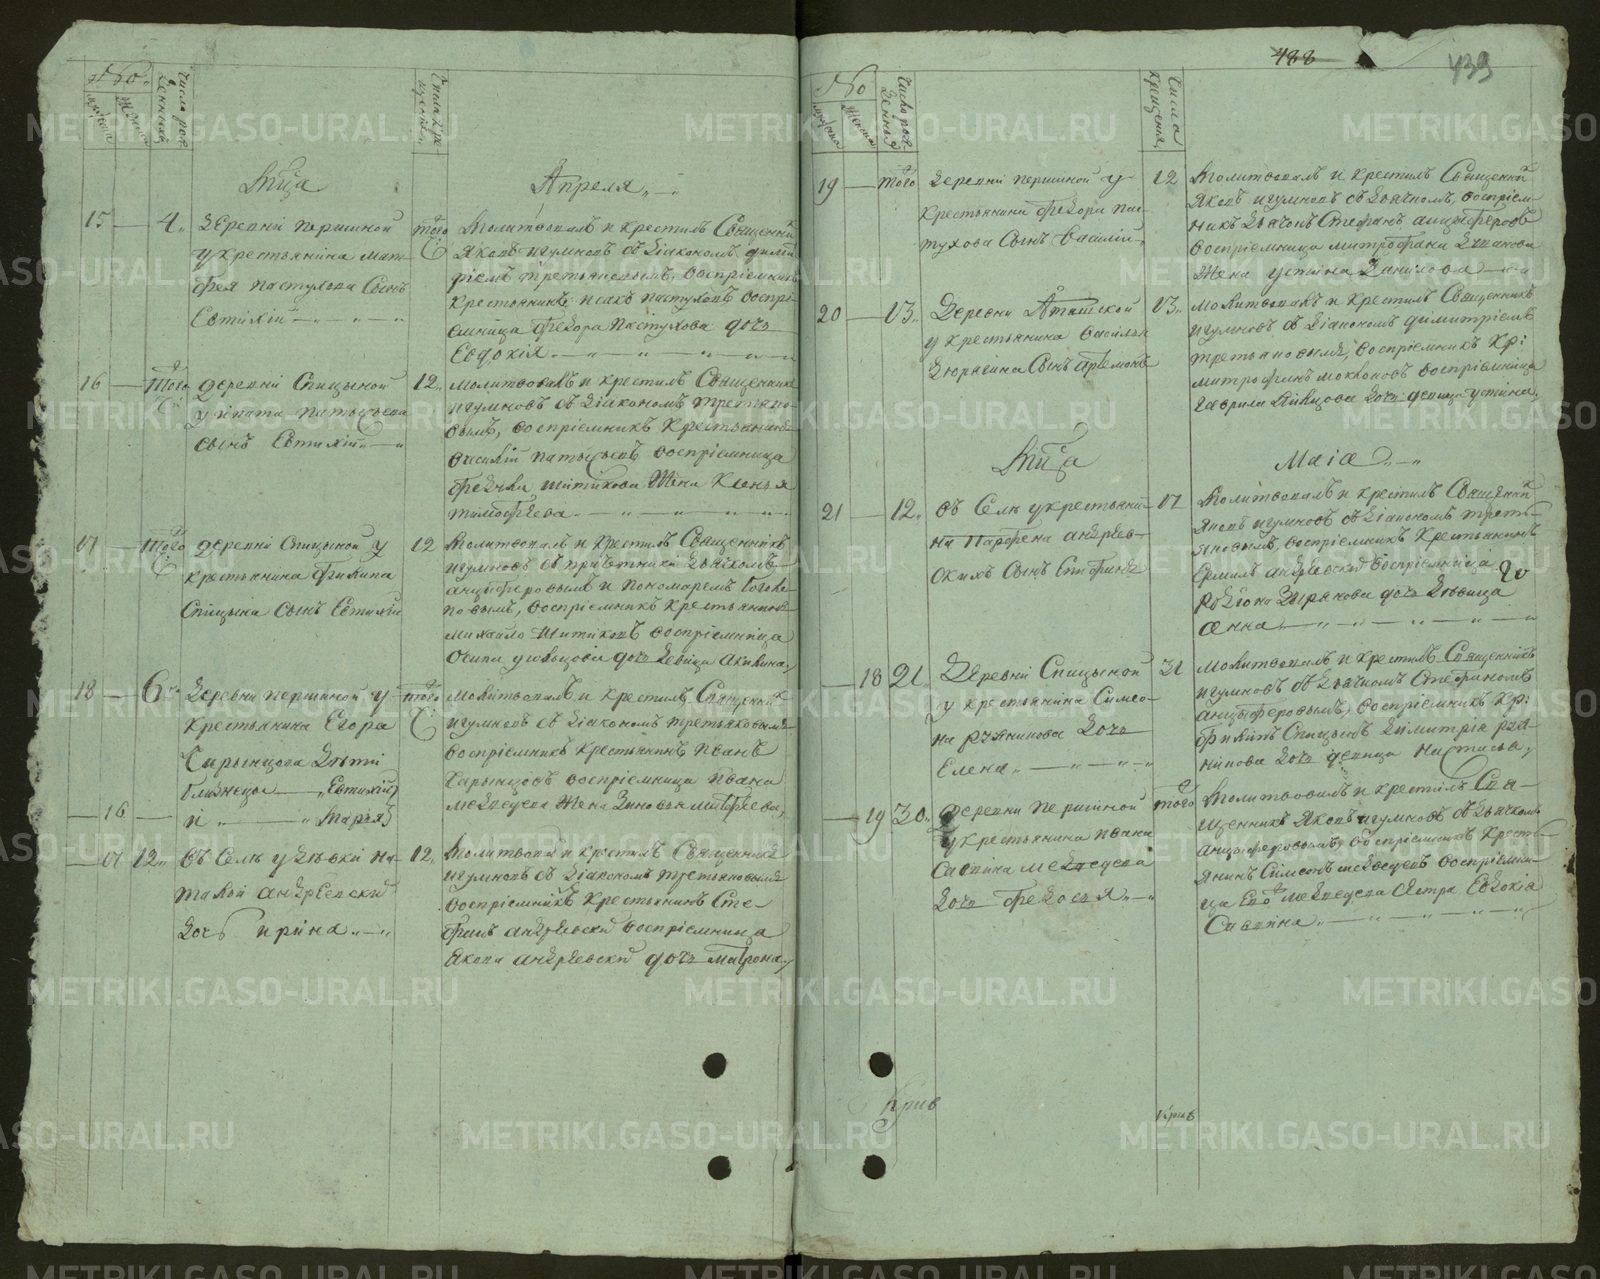 №
мужска
женска
Число рож
денныхъ
Число кре
щенія
Мца Апреля
15 4 Деревни Першиной
у крестьянина Мат-
фея Пастухова сынъ
Евтихій
того
Молитвовалъ и крестилъ Священникъ
Яковъ Игумновъ съ діакономъ Дими
ріемъ Третьяковымъ, воспріемникъ
крестьянинъ Исакъ Пастуховъ воспрі-
емница Федора Пастухова дочь
Евдокія
16 того Деревни Спицыной
у Ипата
сынъ Евтихій
12
Молитвовалъ и крестилъ Священникъ
Игумновъ съ діакономъ Третьяко-
вымъ, воспріемникъ крестьянинъ
Василій воспріемница
Шитикова жена Ксенья
Тимофѣева
17 того Деревни Спицыной у
крестьянина Филипа
Спицына сынъ Евтихій
12
Молитвовалъ и крестилъ Священникъ
Игумновъ съ причетники дьячкомъ
Анцыферовымъ и пономаремъ
воспріемникъ крестьянинъ
Михайло Шитиковъ воспріемница
Осипа дочь девица Акилина
18 6 Деревни Першиной у
крестьянина Егора
Сарынцова дѣти
близнецы Евтихій
16 и Марья
того
Молитвовалъ и крестилъ Священникъ
Игумновъ съ діакономъ Третьяковымъ
воспріемникъ крестьянинъ Иванъ
Сарынцовъ воспріемница Ивана
Медведева жена Зиновья Матфеева
17 12 Въ Селѣ у дѣвки На-
тальи Андрѣевской
дочь Ирина
12
Молитвовалъ и крестилъ Священникъ
Игумновъ съ діакономъ Третьяковымъ
воспріемникъ крестьянинъ Сте-
фанъ Андрѣевской воспріемница
Якова Андрѣевской дочь Матрона
488
439
№
мужска
женска
Число рож
денныхъ
Число
крещенія
19 того Деревни Першиной у
крестьянина Федора Пас-
тухова сынъ Василій
12
Молитвовалъ и крестилъ Священникъ
Яковъ Игумновъ съ дьячкомъ, воспріем-
никъ дьячокъ Стефанъ Анцыферовъ
воспріемница Митрофана
жена Устина Данилова
20 13 Деревни
у крестьянина Василья
Дюрягина сынъ Артемонъ
13
Молитвовалъ и крестилъ Священникъ
Игумновъ съ діакономъ Димитріемъ
Третьяковымъ, воспріемникъ кр:
Митрофанъ воспріемница
Гаврила дочь девица Устина
Мца Маіа
21 12 Въ Селѣ у крестьяни-
на Парфена Андрѣев-
скихъ сынъ Стефанъ
17
Молитвовалъ и крестилъ Священникъ
Яковъ Игумновъ съ діакономъ Треть-
яковымъ, воспріемникъ крестьянинъ
Ермилъ Андрѣевской воспріемница
Родіона Зырянова дочь дѣвица
Анна
18 21 Деревни Спицыной
у крестьянина Симео-
на Рузянинова дочь
Елена
31
Молитвовалъ и крестилъ Священникъ
Игумновъ съ дьячкомъ Стефаномъ
Анцыферовымъ, воспріемникъ кр:
Филипъ Спицынъ Димитрія Руза-
нинова дочь девица Настасья
19 30 Деревни Першиной
у крестьянина Ивана
Савина Медведева
дочь Федосья
того
Молитвовалъ и крестилъ Свя-
щенникъ Яковъ Игумновъ съ дьячкомъ
Анцыферовымъ, воспріемникъ кресть-
янинъ Симеонъ Медведевъ воспріемни-
ца его Медведева сестра Евдокія
Савина